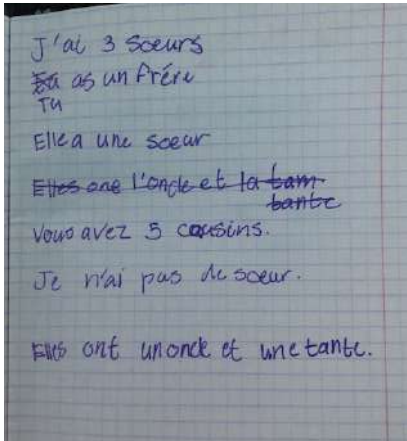 J'ai 3 soeurs
as un frére
Tu
Elle a une soeur
Elles one l'oncle et la tam-
tante
Vous avez 5 cousins.
Je n'ai pas de soeur.
Elles ont un oncle et une tante.